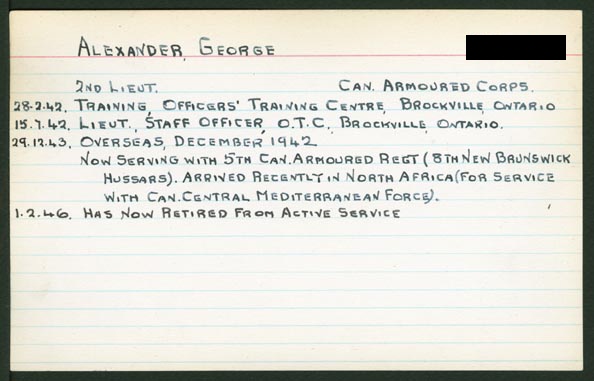 ALEXANDER, GEORGE
2ND LIEUT. CAN. ARMOURED CORPS.
28.2.42. TRAINING, OFFICERS' TRAINING CENTRE, BROCKVILLE, ONTARIO
15.7.42. LIEUT., STAFF OFFICER, O.T.C., BROCKVILLE, ONTARIO.
29.12.43. OVERSEAS, DECEMBER 1942
NOW SERVING WITH 5TH CAN. ARMOURED REGT (8TH NEW BRUNSWICK
HUSSARS). ARRIVED RECENTLY IN NORTH AFRICA (FOR SERVICE
WITH CAN. CENTRAL MEDITERRANEAN FORCE).
1.2.46. HAS NOW RETIRED FROM ACTIVE SERVICE